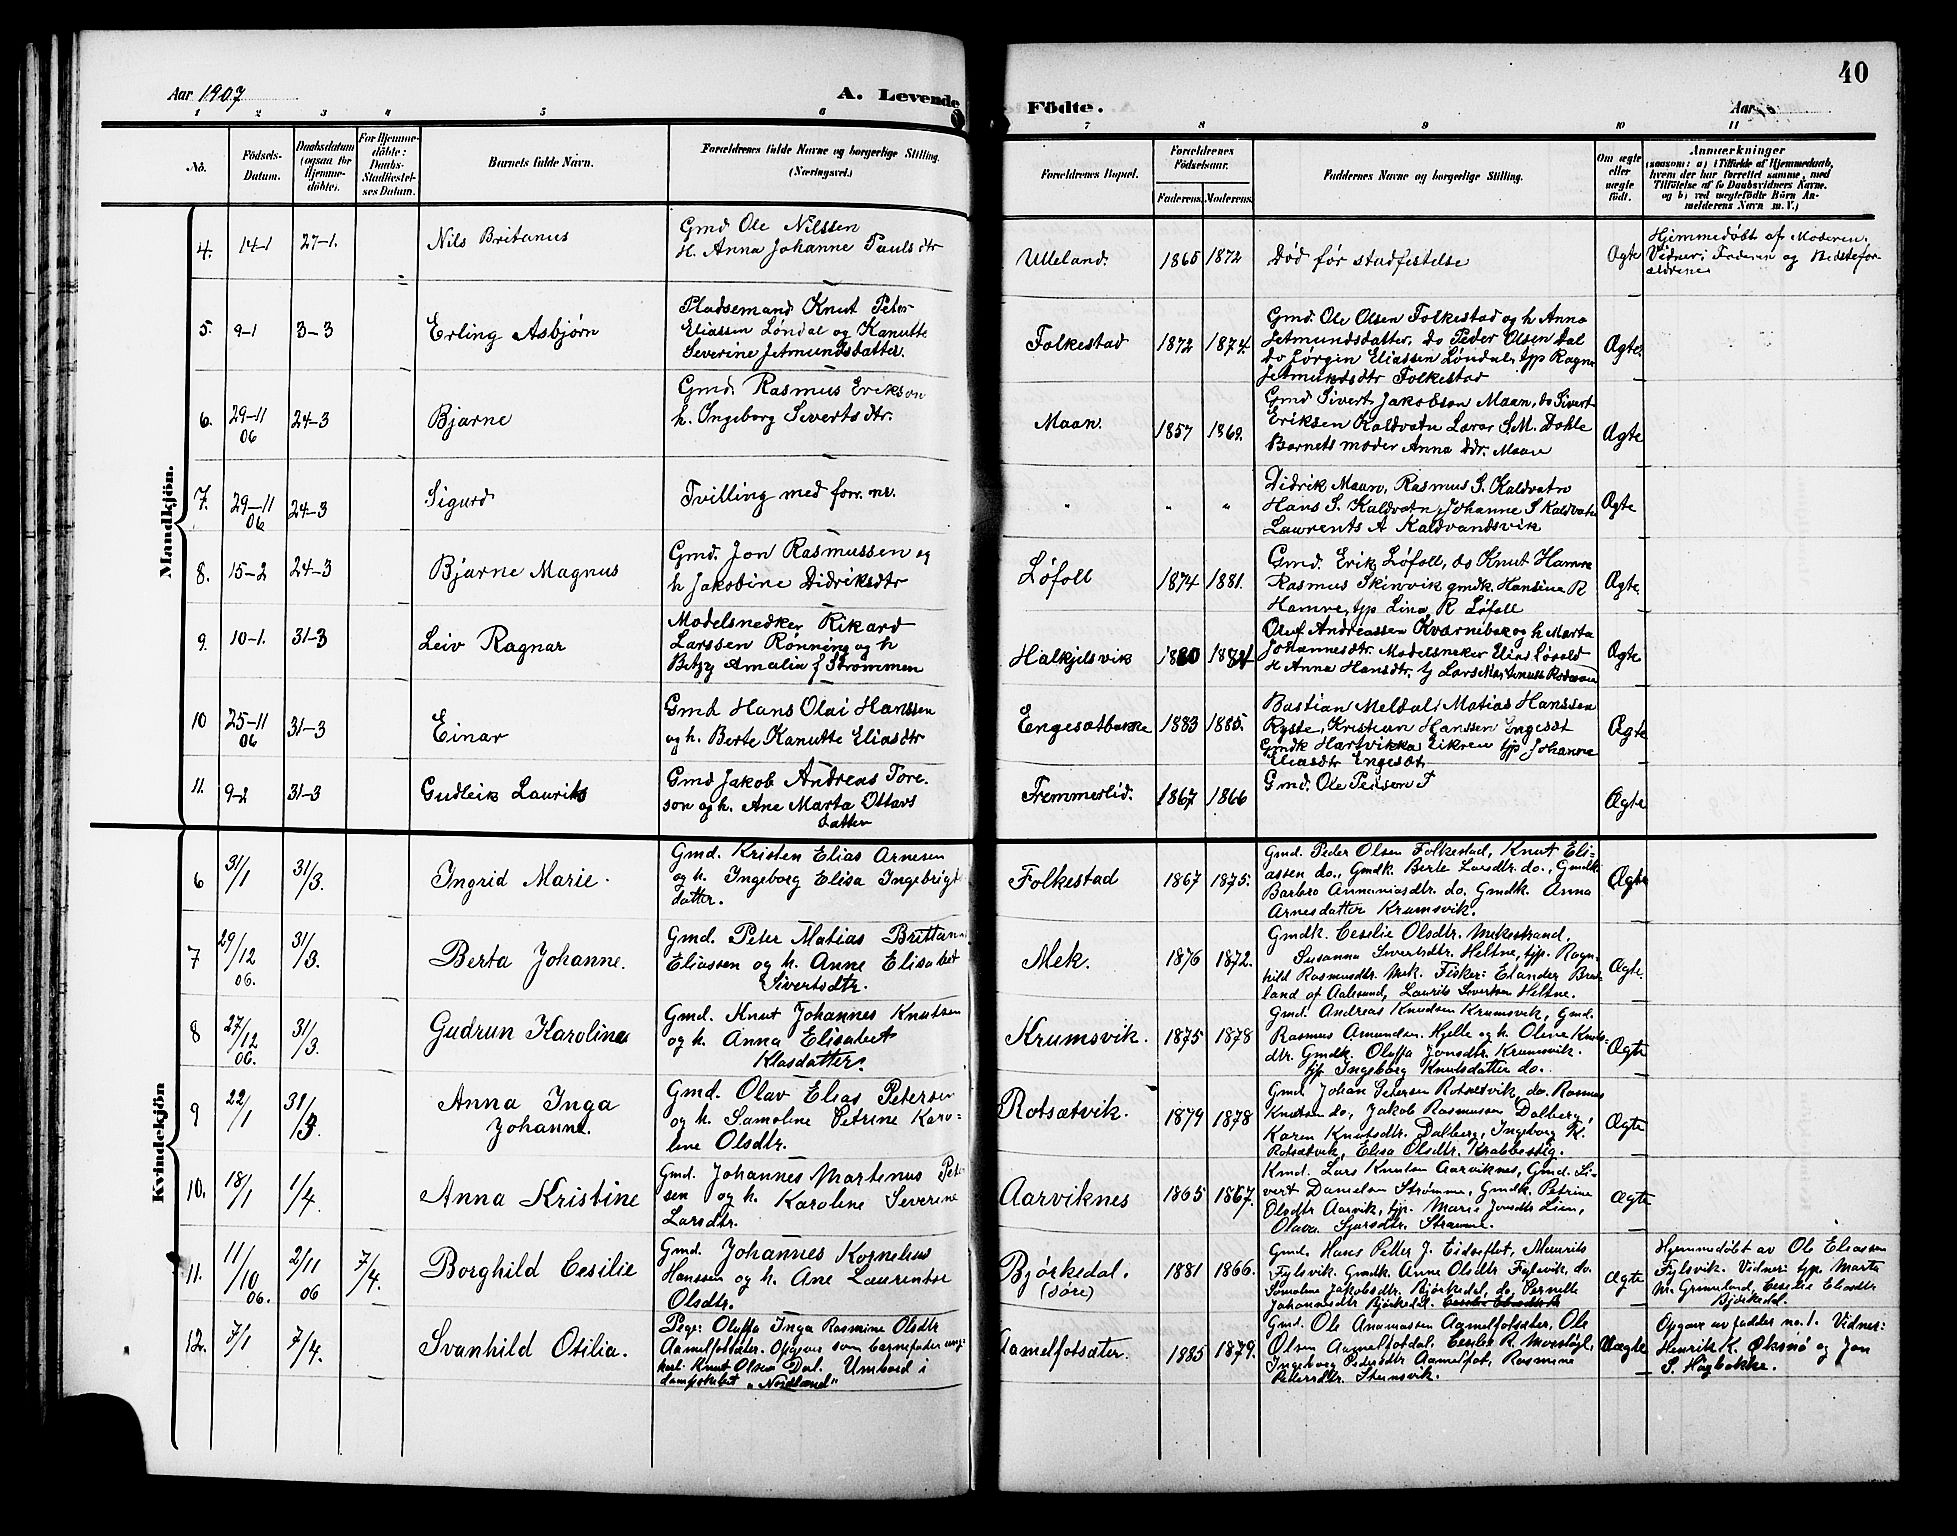 40
Aar 1907
A. Levende
Födte.
Aar
1 2 3 4 5 6
7 8 9 10 11
No.
Födsels-
Datum.
Daabsdatum
(ogsaa for
Hjemme-
döbte).
For Hjemme-
döbte:
Daabs-
Stadfæstel-
ses Datum.
Barnets fulde Navn.
Forældrenes fulde Navne og borgerlige Stilling.
(Næringsvei.)
Forældrenes Bopæl.
Forældrenes
Födselsaar.
Faderens. Moderens.
Faddernes Navne og borgerlige Stilling.
Om ægte
eller
uægte
födt.
Anmærkninger
(saasom: a) i Tilfælde af Hjemmedaab,
hvem der har forrettet samme, med
Tilföielse af to Daabsvidners Navne.
og b) ved uægtefödte Börn An-
melderens Navn m. V.)
Mandkjön.
4. 14-1 27-1.
Nils Britanus
Gmd Ole Nilssen
H. Anna Johanne Paulsdtr
Ulleland. 1865 1872
Død før stadfestelse
Ægte
Hjemmedøbt af Moderen.
Vidner: Faderen og Bedstefor-
ældrene
5. 9-1 3-3
Erling Asbjørn
Pladsemand Knut Peter
Eliassen Løndal og Kanutte
Severine Jetmundsdatter.
Folkestad 1872 1874.
Gmd. Ole Olsen Folkestad og h Anna
Jetmundsdatter, do Peder Olsen Dal
do Jørgen Eliassen Løndal, tjp Ragna
Jetmundsdtr Folkestad
Ægte.
6. 29-11 06 24-3
Bjarne
Gmd. Rasmus Erikson
h. Ingeborg Severtsdtr.
Maan. 1857 1869.
Gmd Sivert Jakobson Maan, do Sivert
Eriksen Kaldvatn Lærer S.M. Dahle
Barnets moder Anna Ddr. Maan
Ægte
7. 29-11 06 24-3
Sigurd
Tvilling med forr. nr.
" " "
Didrik Maan, Rasmus S. Kaldvatn
Hans S. Kaldvatn, Johanne S Kaldvatn
Laurents A Kaldvandsvik
Ægte
8. 15-2 24-3
Bjarne Magnus
Gmd. Jon Rasmussen og
h Jakobine Didriksdtr
Løfoll 1874 1881.
Gmd. Erik Løfoll, do Knut Hamre
Rasmus Skinvik gmdk. Hansine R
Hamre, tjp Lina R Løfoll
Ægte.
9. 10-1. 31-3
Leiv Ragnar
Modelsnedker Rikard
Larssen Rønning og h
Betzy Amalia f Strømmen
Halkjelsvik 1880 1884
Oluf Andreassen Kvarnebak og h Marta
Johannesdtr. Modelsneker Elias Løvold
H Anna Hansdtr. tj Lars Martinus
Ægte
10 25-11 06 31-3
Einar
Gmd Hans Olai Hanssen
og h. Berte Kanutte Eliasdtr
Engesætbakke 1883 1885.
Bastian Meldal, Matias Hanssen
Ryste, Kristian Hanssen Engesæt
Gmdk Hartvikka Eikren tjp Johanne
Eliasdtr Engesæt
Ægte
11. 9-2 31-3
Gudleik Laurits
Gmd Jakob Andreas Tore-
son og h. Ane Marta Ottars
datter
Fremmerlid. 1867 1866
Gmd. Ole F
Ægte
Kvindekjön
6 31/1 31/3.
Ingrid Marie.
Gmd. Kristen Elias Arnesen
og h. Ingeborg Elisa Ingebrigts
datter.
Folkestad 1867 1875.
Gmd. Peder Olsen Folkestad, Knut Eli-
assen do., Gmdk Berte Larsdtr. do., Gmdk
Barbro Ananiasdtr. do. Gmdk. Anna
Arnesdatter Krumsvik.
Ægte
7 29/12 06. 31/3.
Berta Johanne.
Gmd. Peter Matias Brittan
Eliassen og h. Anne Elisabet
Sivertsdtr.
Mek. 1876 1872.
Gmdk. Cesilie Olsdtr. Mekestrand,
Susanna Sivertsdtr. Heltne, tjp. Ragn-
hild Rasmusdtr. Mek. Fisker: Elander Brat-
land af Aalesund, Laurits Sivertsen Heltne.
Ægte.
8 27/12 06. 31/3.
Gudrun Karoline
Gmd. Knut Johannes Knutsen
og h. Anna Elisabet
Klasdatter.
Krumsvik. 1875 1878
Gmd. Andreas Knudsen Krumsvik, Gmd.
Rasmus Amundsen Hjelle og h. Oline Knuts-
dtr. Gmdk. Oluffa Jonsdtr. Krumsvik.
tjp Ingeborg Knutsdatter do.
Ægte
9 22/1 31/3.
Anna Inga
Johanne.
Gmd. Olav Elias Petersen
og h. Samoline Petrine Karo-
line Olsdtr.
Rotsætvik. 1879 1878
Gmd Johan Petersen Rotsetvik, do. Rasmus
Knutsen do, Jakob Rasmussen Dalberg,
Karen Knutsdtr. Dalberg, Ingeborg K.
Rotsætvik, Elisa Olsdtr. Krabbestig.
Ægte
10. 18/1 1/4.
Anna Kristine
Gmd. Johannes Martenus Peter
sen og h. Karoline Severine
Larsdtr.
Aarviknes 1865 1867.
Kmd. Lars Knutsen Aarviknes, Gmd. Si-
vert Danielsen Strømme, Gmdk. Petrine
Olsdtr Aarvik, tjp. Marie Jonsdtr Lien,
Olava Sjursdtr. Strømme.
Ægte
11. 11/10 06. 2/11 06 7/4.
Borghild Cesilie
Gmd. Johannes Kornelius
Hanssen og h. Ane Laurentse
Olsdtr.
Bjørkedal. (søre) 1881 1866.
Gmd. Hans Petter J. Eidseflot, Maurits
Fylsvik. Gmdk. Anne Olsdtr Fylsvik, do.
Samoline Jakobsdtr. Bjørkedal, do. Pernille
Johannesdtr Bjørkedal.
Ægte
Hjemmedøbt av Ole Eliassen
Fylsvik. Vidner: tjp. Marta
M. Grimstad, Cesilie Elasdtr
Bjørkedal.
12. 7/1 7/4.
Svanhild Otilia.
Pige: Oluffa Inga Rasmine Olsdtr
Aamelfotsæter. Opgever som barnefader ung-
karl Knut Olsen Dal. Umbord i
dampskibet "Nordland"
Aamelfotsæter. 1885 1879.
Gmd. Ole Ananiassen Aamelfotsæter, Ole
Olsen Aamelfotdal, Cesilie R. Morstøl,
Ingeborg Pedersdtr Aamelfot, Rasmine
Pedersdtr. Steinsvik.
Uægte
Opgave av fadder no. 1. Vidner:
Henrik K. Øksnø og Jon
S. Hagbakke.